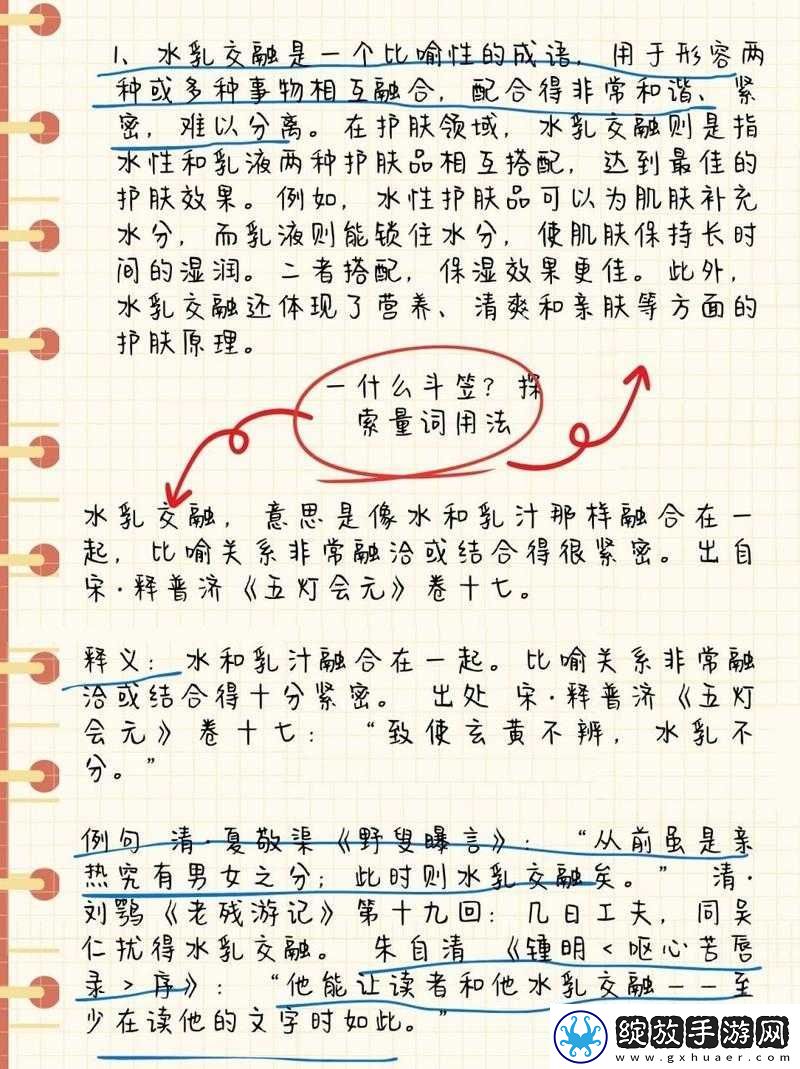 1、水乳交融是一个比喻性的成语，用于形容两
种或多种事物相互融合，配合得非常和谐、紧
密，难以分离。在护肤领域，水乳交融则是指
水性和乳液两种护肤品相互搭配，达到最佳的
护肤效果。例如，水性护肤品可以为肌肤补充
水分，而乳液则能锁住水分，使肌肤保持长时
间的湿润。二者搭配，保湿效果更佳。此外，
水乳交融还体现了营养、清爽和亲肤等方面的
护肤原理。
一什么斗笠？探
索量词用法
水乳交融，意思是像水和乳汁那样融合在一
起，比喻关系非常融洽或结合得很紧密。出自
宋·释普济《五灯会元》卷十七。
释义：水和乳汁融合在一起。比喻关系非常融
洽或结合得十分紧密。 出处 宋·释普济《五灯
会元》卷十七：“致使玄黄不辨，水乳不
分。”
例句 清·夏敬渠《野叟曝言》：“从前虽是亲
热究有男女之分；此时则水乳交融矣。” 清·
刘鹗《老残游记》第十九回：几日工夫，同吴
仁扰得水乳交融。 朱自清 《锺明<呕心苦唇
录>序》：“他能让读者和他水乳交融——至
少在读他的文字时如此。”
绽放手游网
www.gxhuaer.com